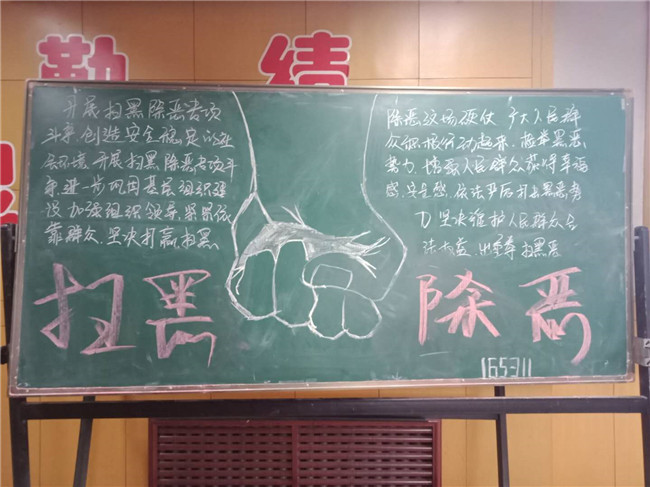 勤 绩
开展扫黑除恶专项
斗争创造安全稳定的
环境 开展扫黑除恶专项斗
争进一步巩固基层组织建
设 加强组织领导 紧紧依
靠群众、坚决打赢扫黑
除恶这场硬仗 广大人民群
众积极行动起来、检举黑恶
势力、增强人民群众获得幸福
感、安全感、依法严厉打击黑恶势
力 坚决维护人民群众合
法 扫黑恶
扫黑 除恶
165311